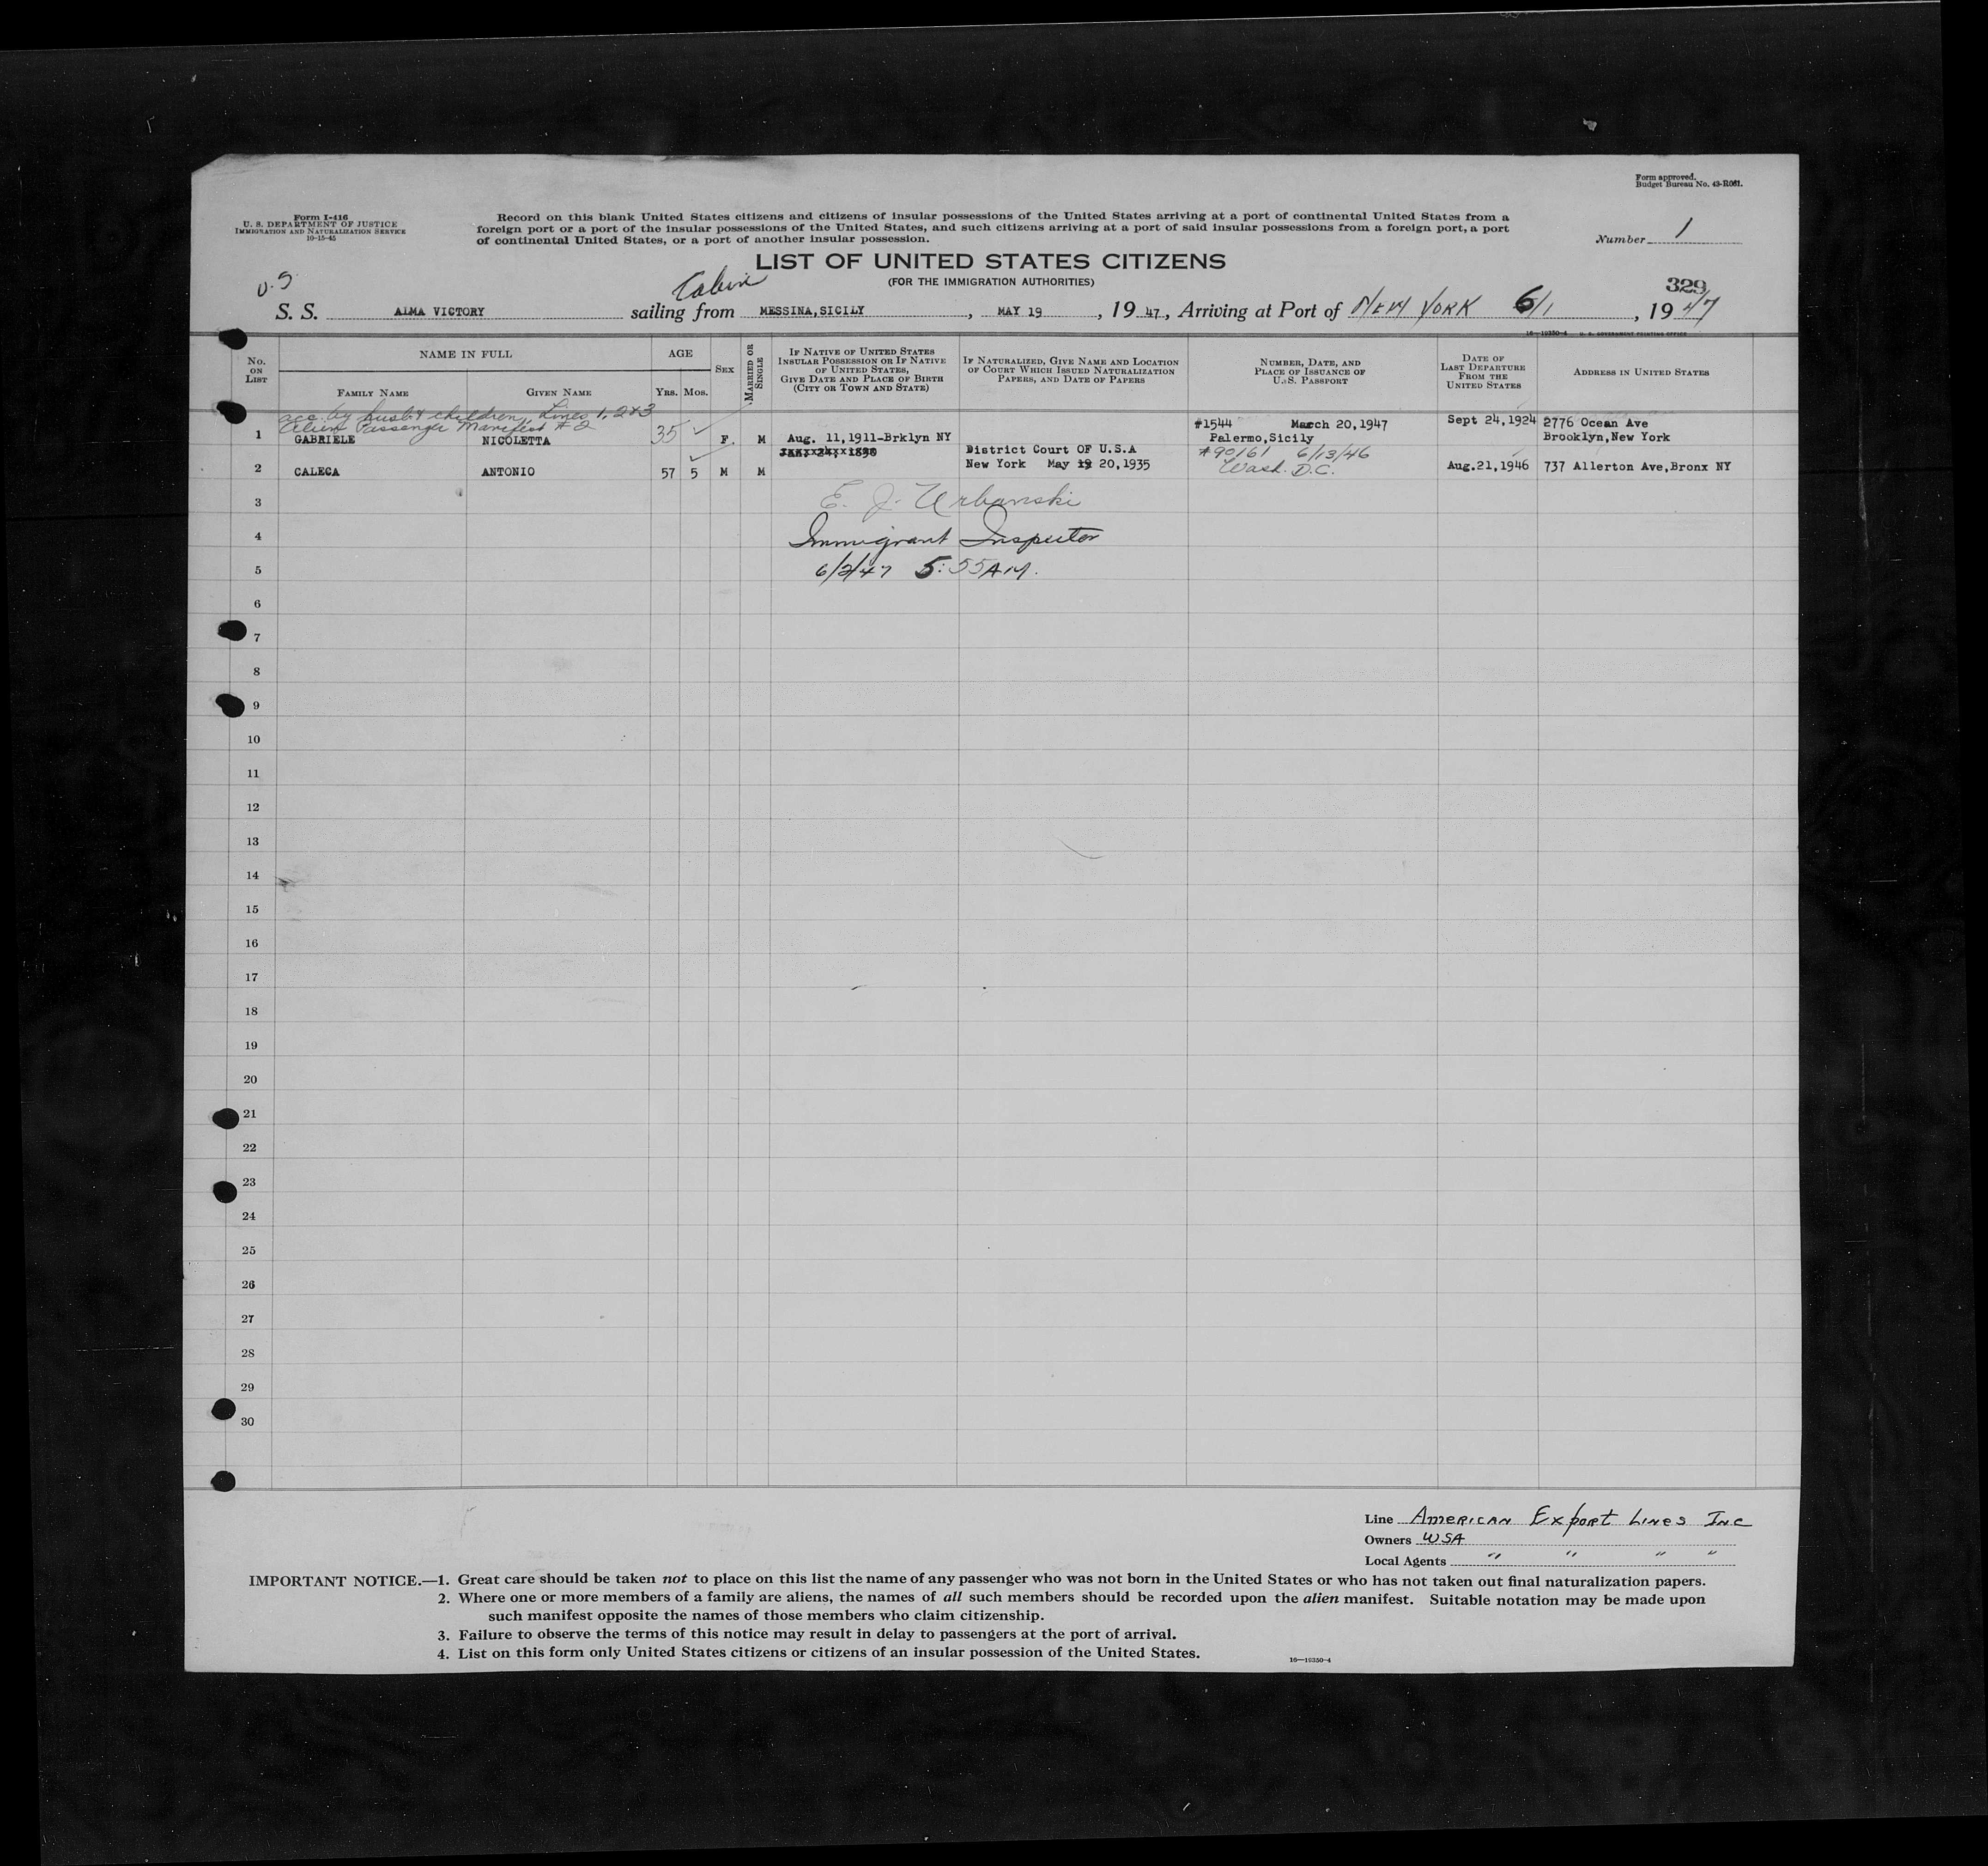 Form approved.
Budget Bureau No. 43-R081.
Form I-416
U. S. DEPARTMENT OF JUSTICE
IMMIGRATION AND NATURALIZATION SERVICE
10-15-45
Record on this blank United States citizens and citizens of insular possessions of the United States arriving at a port of continental United States from a
foreign port or a port of the insular possessions of the United States, and such citizens arriving at a port of said insular possessions from a foreign port, a port
of continental United States, or a port of another insular possession.
Number 1
LIST OF UNITED STATES CITIZENS
(FOR THE IMMIGRATION AUTHORITIES)
U.S
Cabin
329
S. S. ALMA VICTORY sailing from MESSINA,SICILY , MAY 19 , 19 47 , Arriving at Port of NEW YORK 6/1 , 19 47
16—19350-4 U. S. GOVERNMENT PRINTING OFFICE
No. ON LIST
NAME IN FULL
FAMILY NAME GIVEN NAME
AGE
YRS. MOS.
SEX
MARRIED OR SINGLE
IF NATIVE OF UNITED STATES INSULAR POSSESSION OR IF NATIVE OF UNITED STATES, GIVE DATE AND PLACE OF BIRTH (CITY OR TOWN AND STATE)
IF NATURALIZED, GIVE NAME AND LOCATION OF COURT WHICH ISSUED NATURALIZATION PAPERS, AND DATE OF PAPERS
NUMBER, DATE, AND PLACE OF ISSUANCE OF U. S. PASSPORT
DATE OF LAST DEPARTURE FROM THE UNITED STATES
ADDRESS IN UNITED STATES
acc. by husb & children, Lines 1, 2 & 3
Alien Passenger Manifest # 2
1 GABRIELE NICOLETTA 35 F. M Aug. 11,1911-Brklyn NY #1544 March 20,1947 Palermo,Sicily Sept 24,1924 2776 Ocean Ave Brooklyn,New York
2 CALECA ANTONIO 57 5 M M District Court OF U.S.A New York May 20,1935 #90161 6/13/46 Wash. D.C. Aug.21,1946 737 Allerton Ave,Bronx NY
3 E. J. Urbanski
4 Immigrant Inspector
5 6/2/47 5:55 AM.
6
7
8
9
10
11
12
13
14
15
16
17
18
19
20
21
22
23
24
25
26
27
28
29
30
Line AMERICAN Export LINES INC
Owners WSA
Local Agents " " " "
IMPORTANT NOTICE.—1. Great care should be taken not to place on this list the name of any passenger who was not born in the United States or who has not taken out final naturalization papers.
2. Where one or more members of a family are aliens, the names of all such members should be recorded upon the alien manifest. Suitable notation may be made upon
such manifest opposite the names of those members who claim citizenship.
3. Failure to observe the terms of this notice may result in delay to passengers at the port of arrival.
4. List on this form only United States citizens or citizens of an insular possession of the United States.
16—19350-4